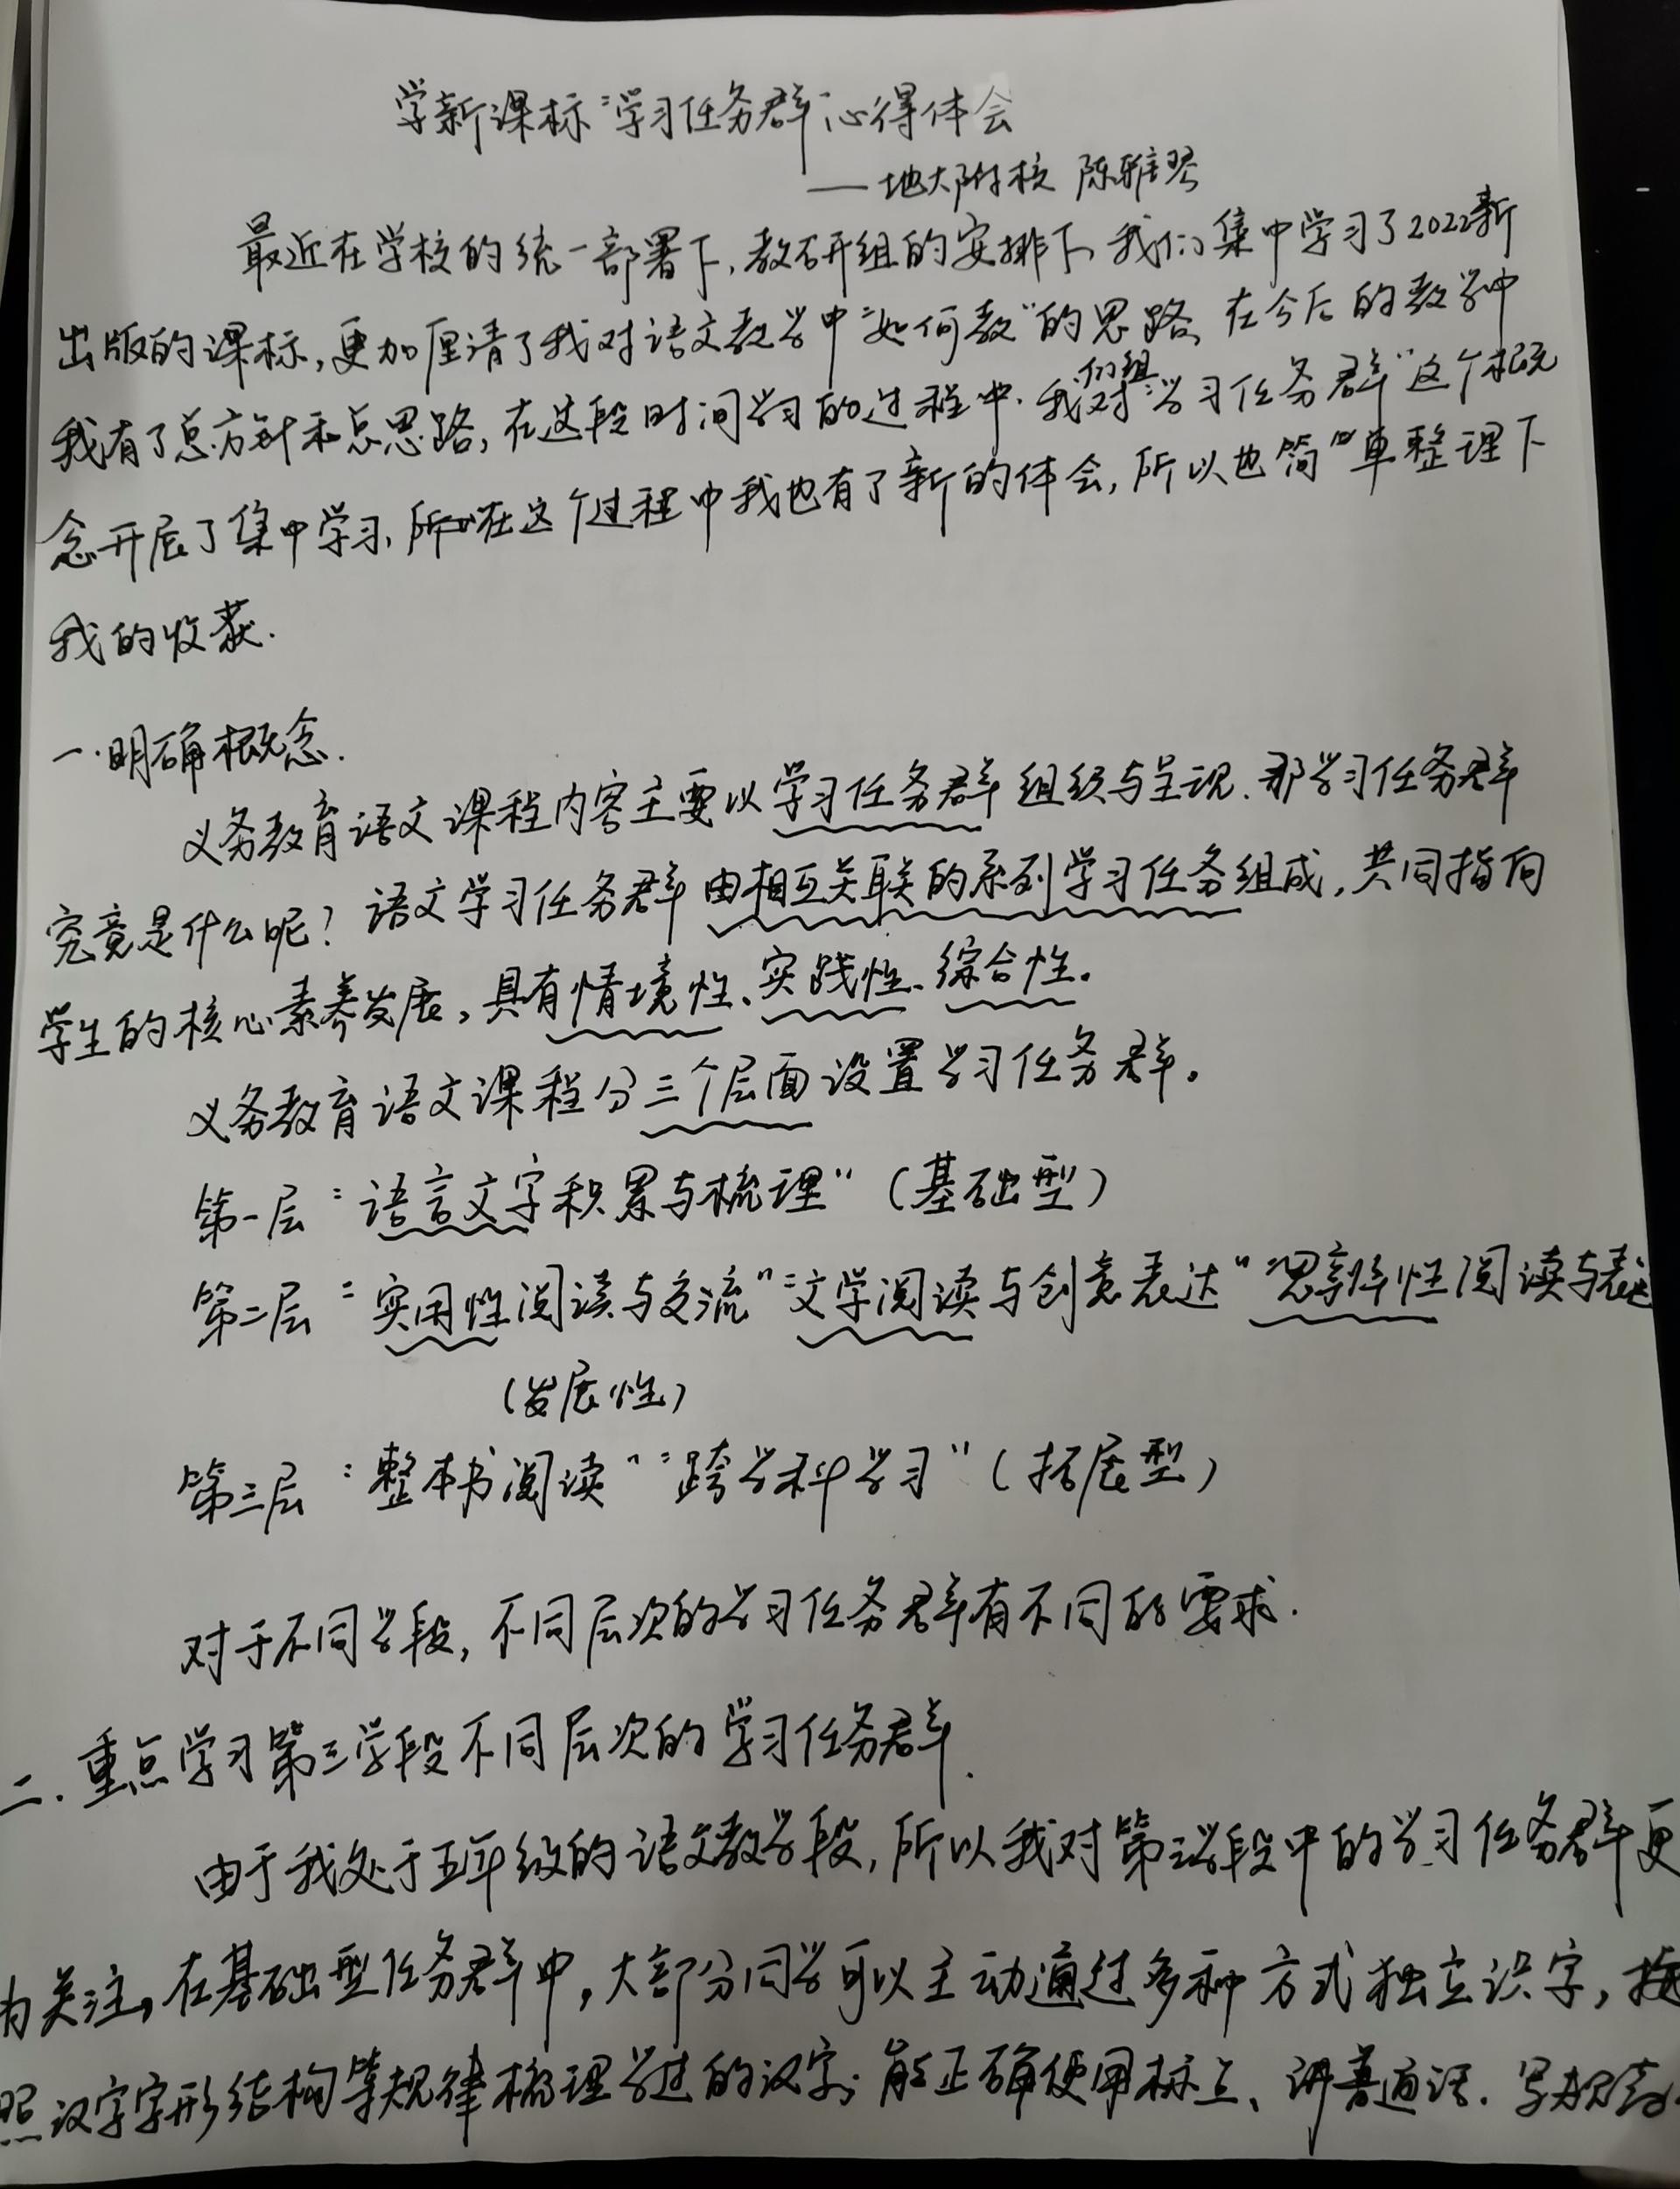 学新课标“学习任务群”心得体会
——地大附校 陈雅琴
最近在学校的统一部署下,教研组的安排下,我们集中学习了2022新
出版的课标,更加厘请了我对语文教学中“如何教”的思路,在今后的教学中
我有了总方针和总思路,在这段时间学习的过程中.我们组对“学习任务群”这个概
念开展了集中学习,所以在这个过程中我也有了新的体会,所以也简单整理下
我的收获.
一.明确概念.
义务教育语文课程内容主要以学习任务群组织与呈现.那学习任务群
究竟是什么呢?语文学习任务群由相互关联的系列学习任务组成,共同指向
学生的核心素养发展,具有情境性、实践性、综合性。
义务教育语文课程分三个层面设置学习任务群。
第一层“语言文字积累与梳理”(基础型)
第二层“实用性阅读与交流”“文学阅读与创意表达”“思辨性阅读与表达
(发展性)
第三层“整本书阅读”“跨学科学习”(拓展型)
对于不同学段,不同层次的学习任务群有不同的要求.
二.重点学习第三学段不同层次的学习任务群.
由于我处于五年级的语文教学段,所以我对第三学段中的学习任务群更
为关注,在基础型任务群中,大部分同学可以主动通过多种方式独立识字,按
照汉字字形结构等规律梳理学过的汉字;能正确使用标点、讲普通话.写规范